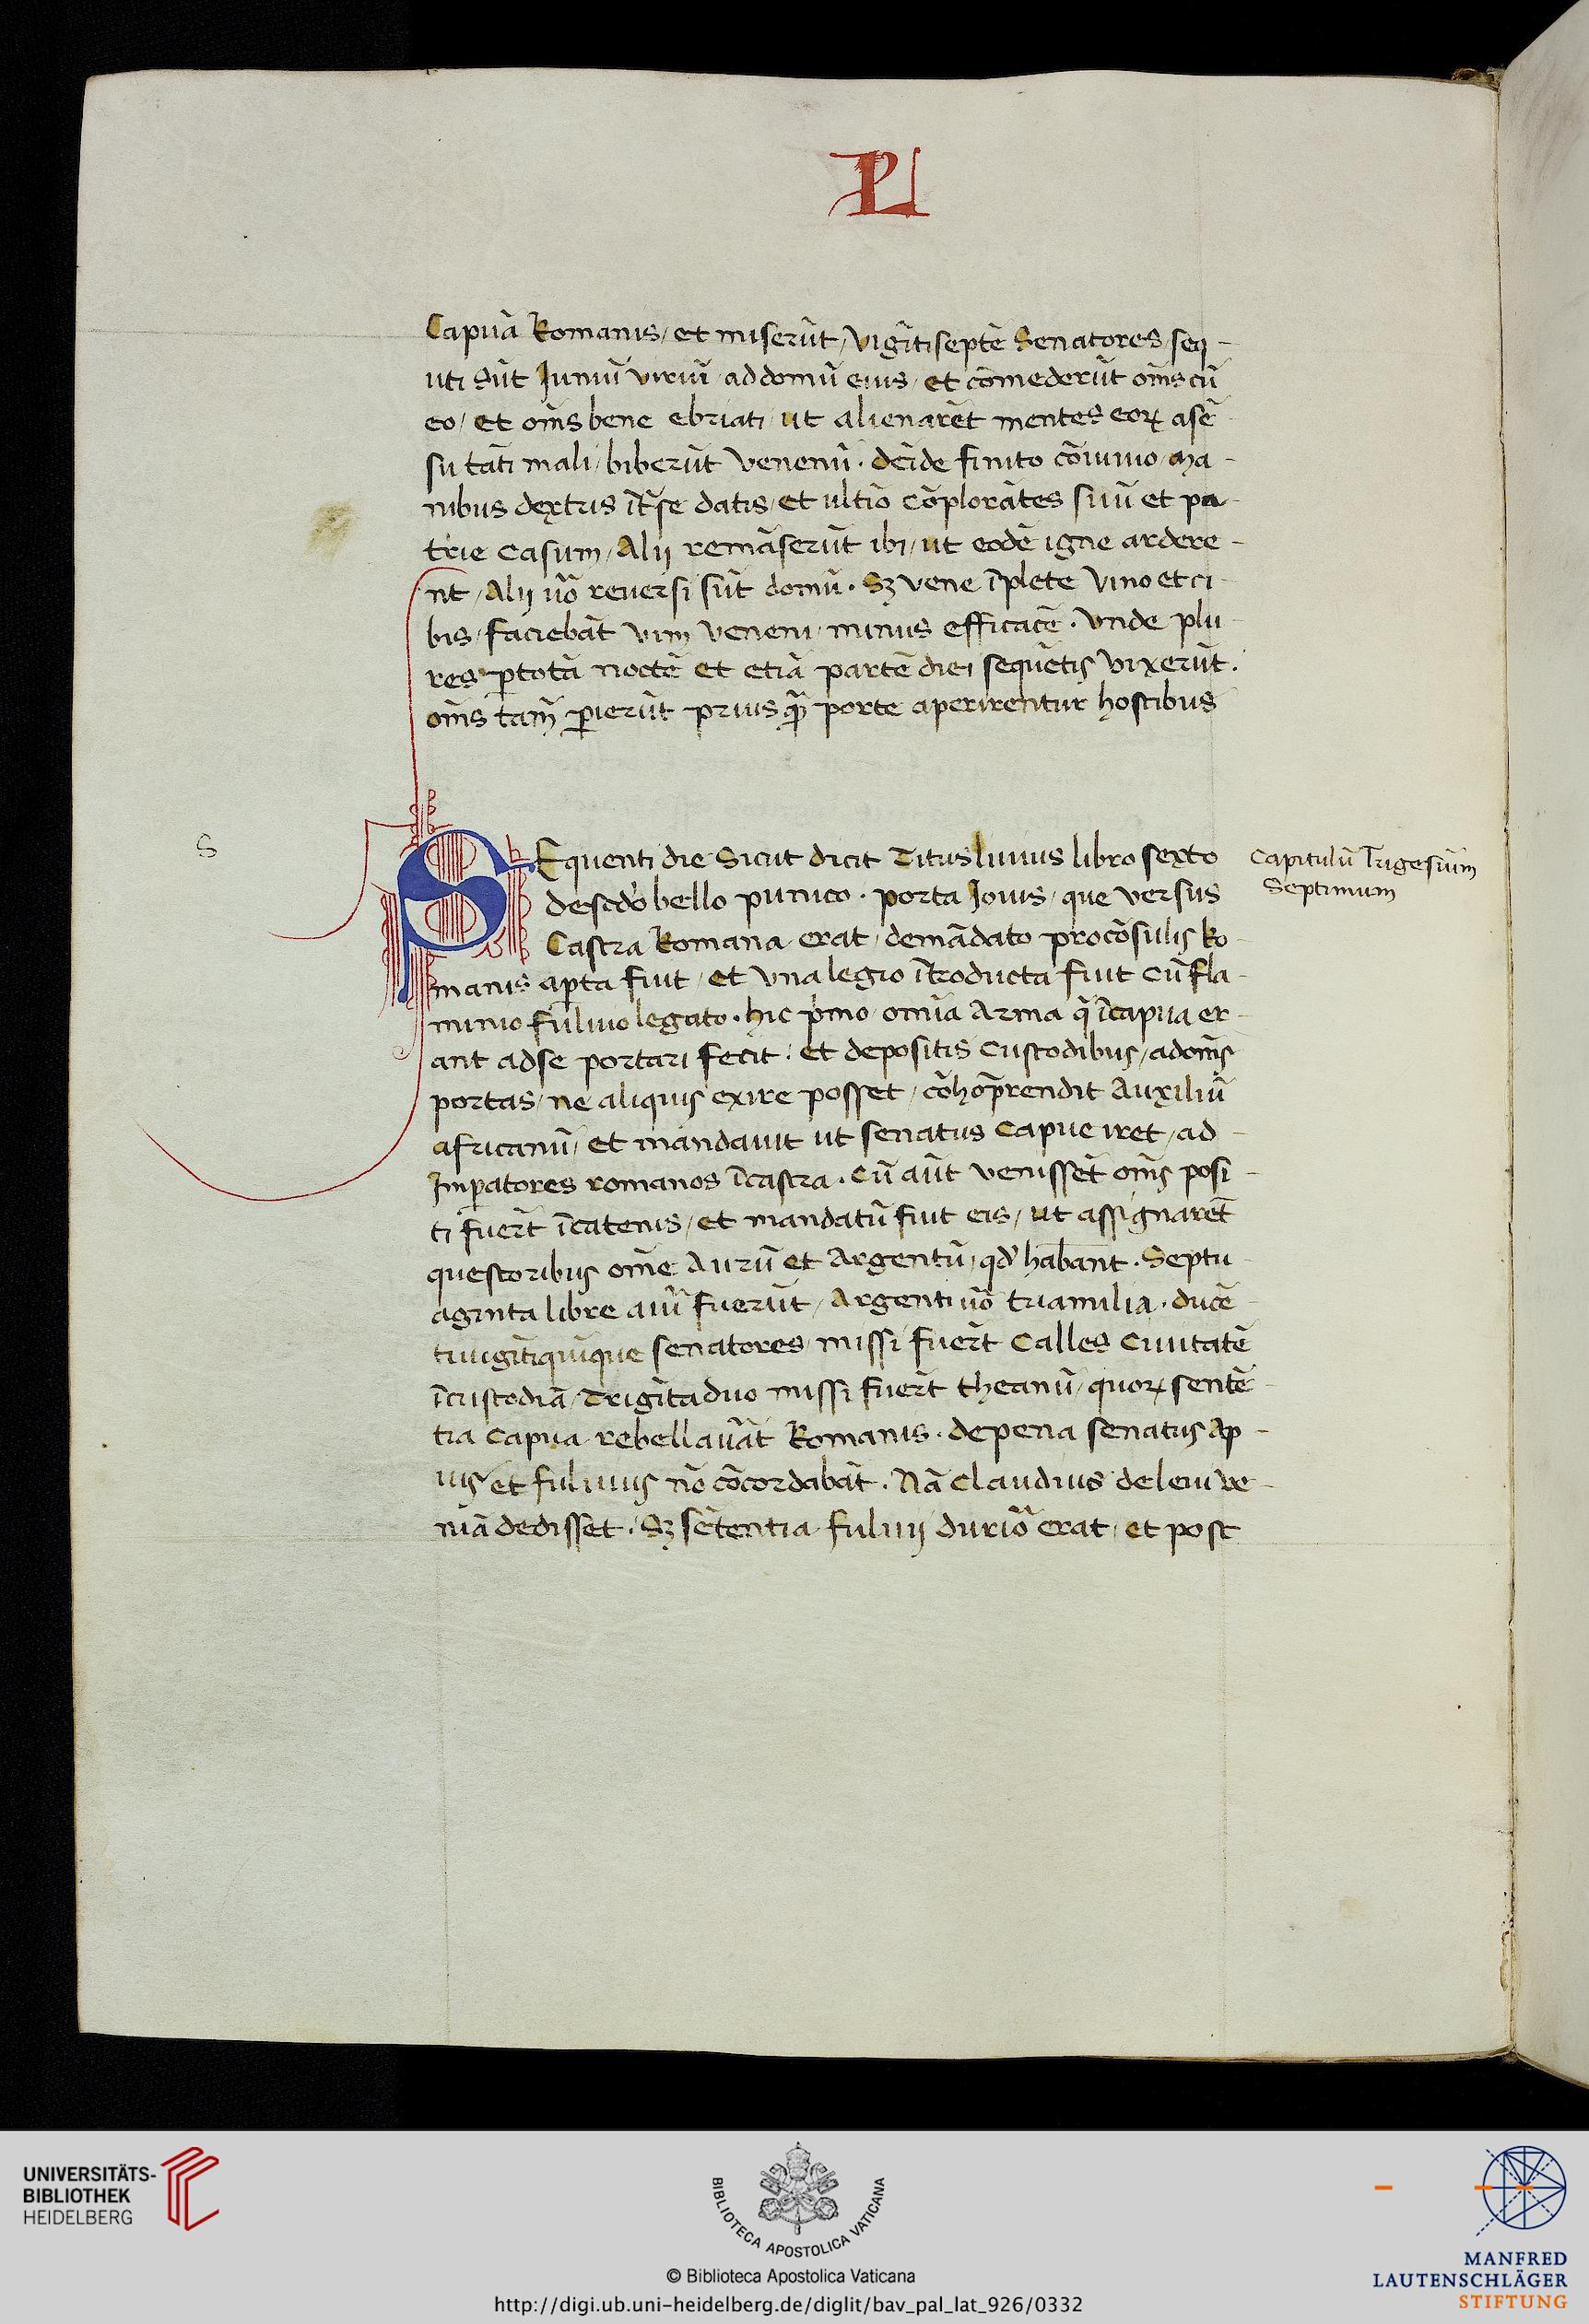 PL
Capuā Romanis / et miserūt / vigītiseptē Senatores seq̄-
uti sūt Juniū viriū ad domū eius / et cōmederūt om̄s cū
eo / et om̄s bene ebriati / ut alienarēt mentes eoꝝ a sē-
su tāti mali / biberūt venenū · deīde finito cōuiuio / ma-
nibus dextris īt̄ se datis / et ultīo cōplorātes suū et pa-
trie casum / Alij remāserūt ibi / ut eodē igne ardere-
nt / Alij uō reuersi sūt domū · Sꝫ vene īplete vino et ci-
bis / faciebāt vim veneni minus efficacē · vnde plu-
res ꝑ totā noctē et etiā partē diei sequētis vixerūt ·
om̄s tam̄ ꝑierūt prius qᷓ porte aperirentur hostibus
S
SEquenti die Sicut dicit Titus liuius libro sexto
de sc̄do bello punico · porta Jouis / que versus
Castra Romana erat / de mādato procōsulis Ro-
manis aꝑta fuit / et vna legio ītroducta fuit cū fla-
minio fuluio legato · hic p̄mo omīa Arma q̄ ī capua er-
ant ad se portari fecit · et depositis custodibus / ad om̄s
portas / ne aliquis exire posset / cōhop̄rendit Auxiliū
africanū / et mandauit ut senatus Capue iret / ad
Imꝑatores romanos ī castra · Cū aūt venissēt om̄s posi-
ti fuer̄t ī catenis / et mandatū fuit eis / ut assignarēt
questoribus om̄e Aurū et Argentū / qd̄ habāant · Septu-
aginta libre auri fuerūt / Argenti uō triamilia · ducē-
tiuigītiquīque senatores missi fuer̄t Calles Ciuitatē
ī custodiā / Trigīta duo missi fuer̄t theanū / quoꝝ sentē-
tia Capua rebellauāt Romanis · de pena senatus Ap-
ius et fuluius nō cōcordabāt · Nā Claudius de leui ve-
niā dedisset · Sꝫ sētentia fuluij duriō erat / et post
Capitulū Trigesiūm
Septimum
UNIVERSITÄTS-
BIBLIOTHEK
HEIDELBERG
BIBLIOTECA APOSTOLICA VATICANA
© Biblioteca Apostolica Vaticana
http://digi.ub.uni-heidelberg.de/diglit/bav_pal_lat_926/0332
MANFRED
LAUTENSCHLÄGER
STIFTUNG